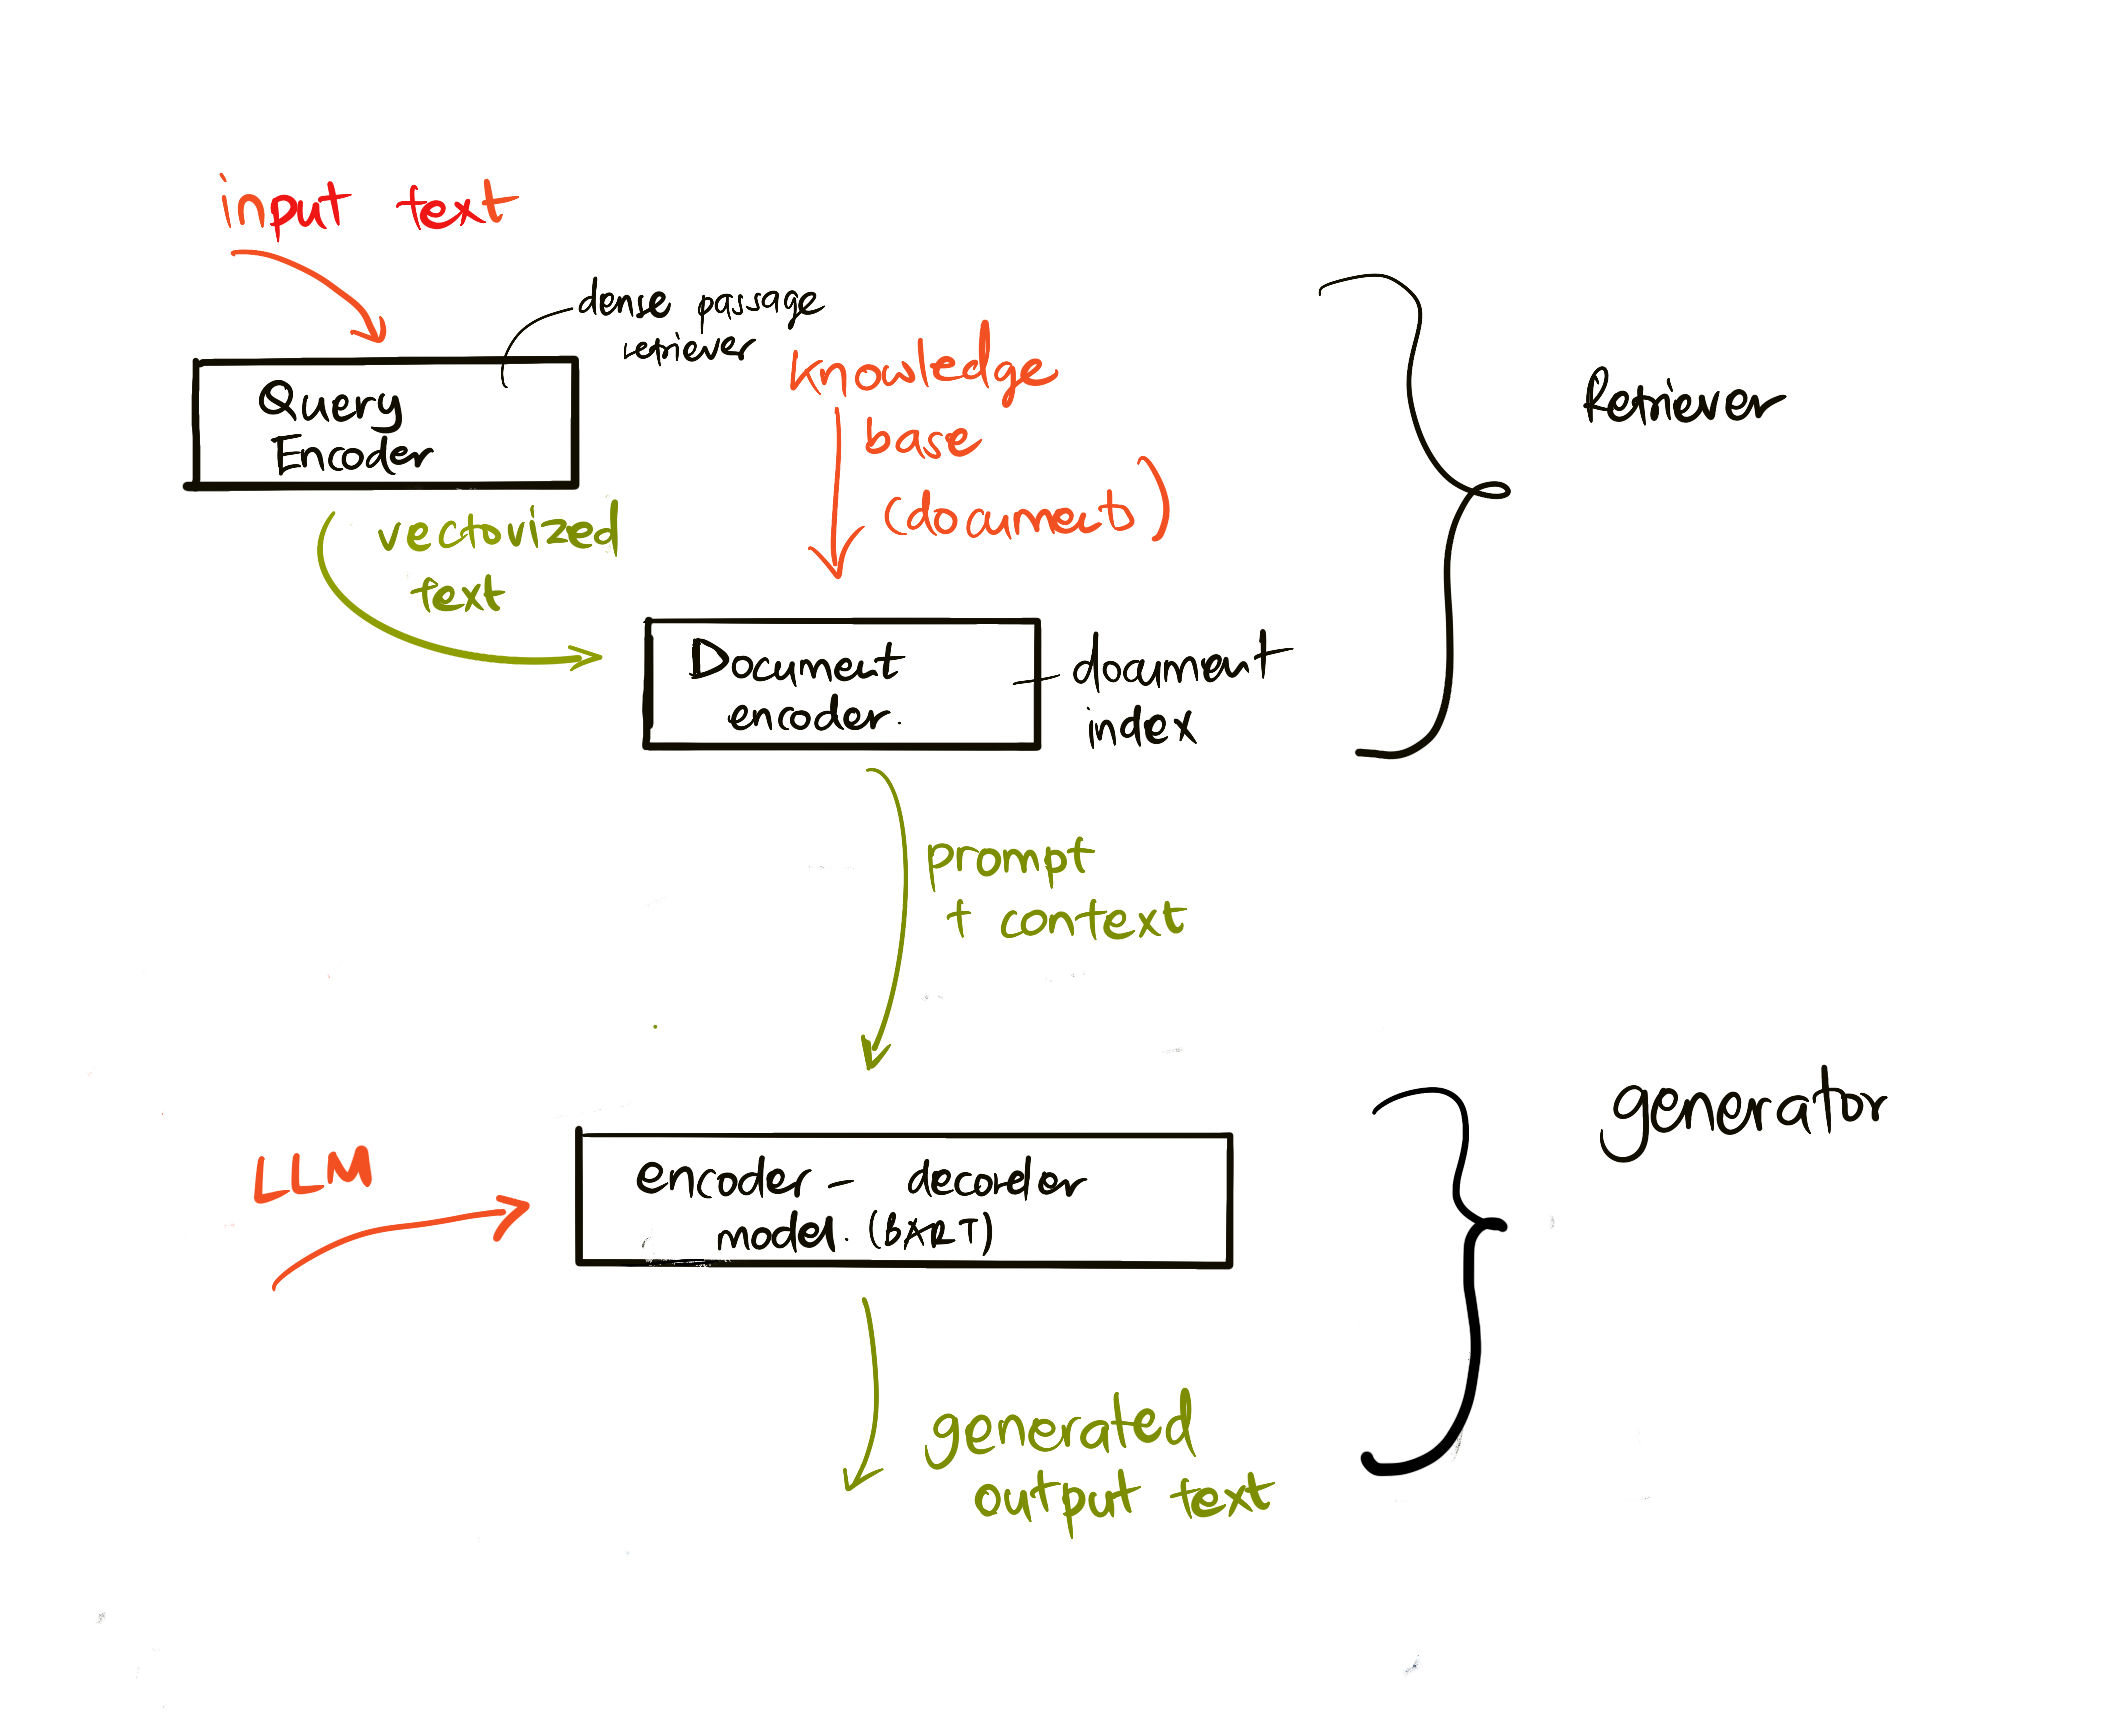 input text
dense passage
retriever
Query
Encoder
knowledge
base
(documents)
Retriever
vectorized
text
Document
encoder.
document
index
prompt
+ context
generator
LLM
encoder - decorder
model. (BART)
generated
output text